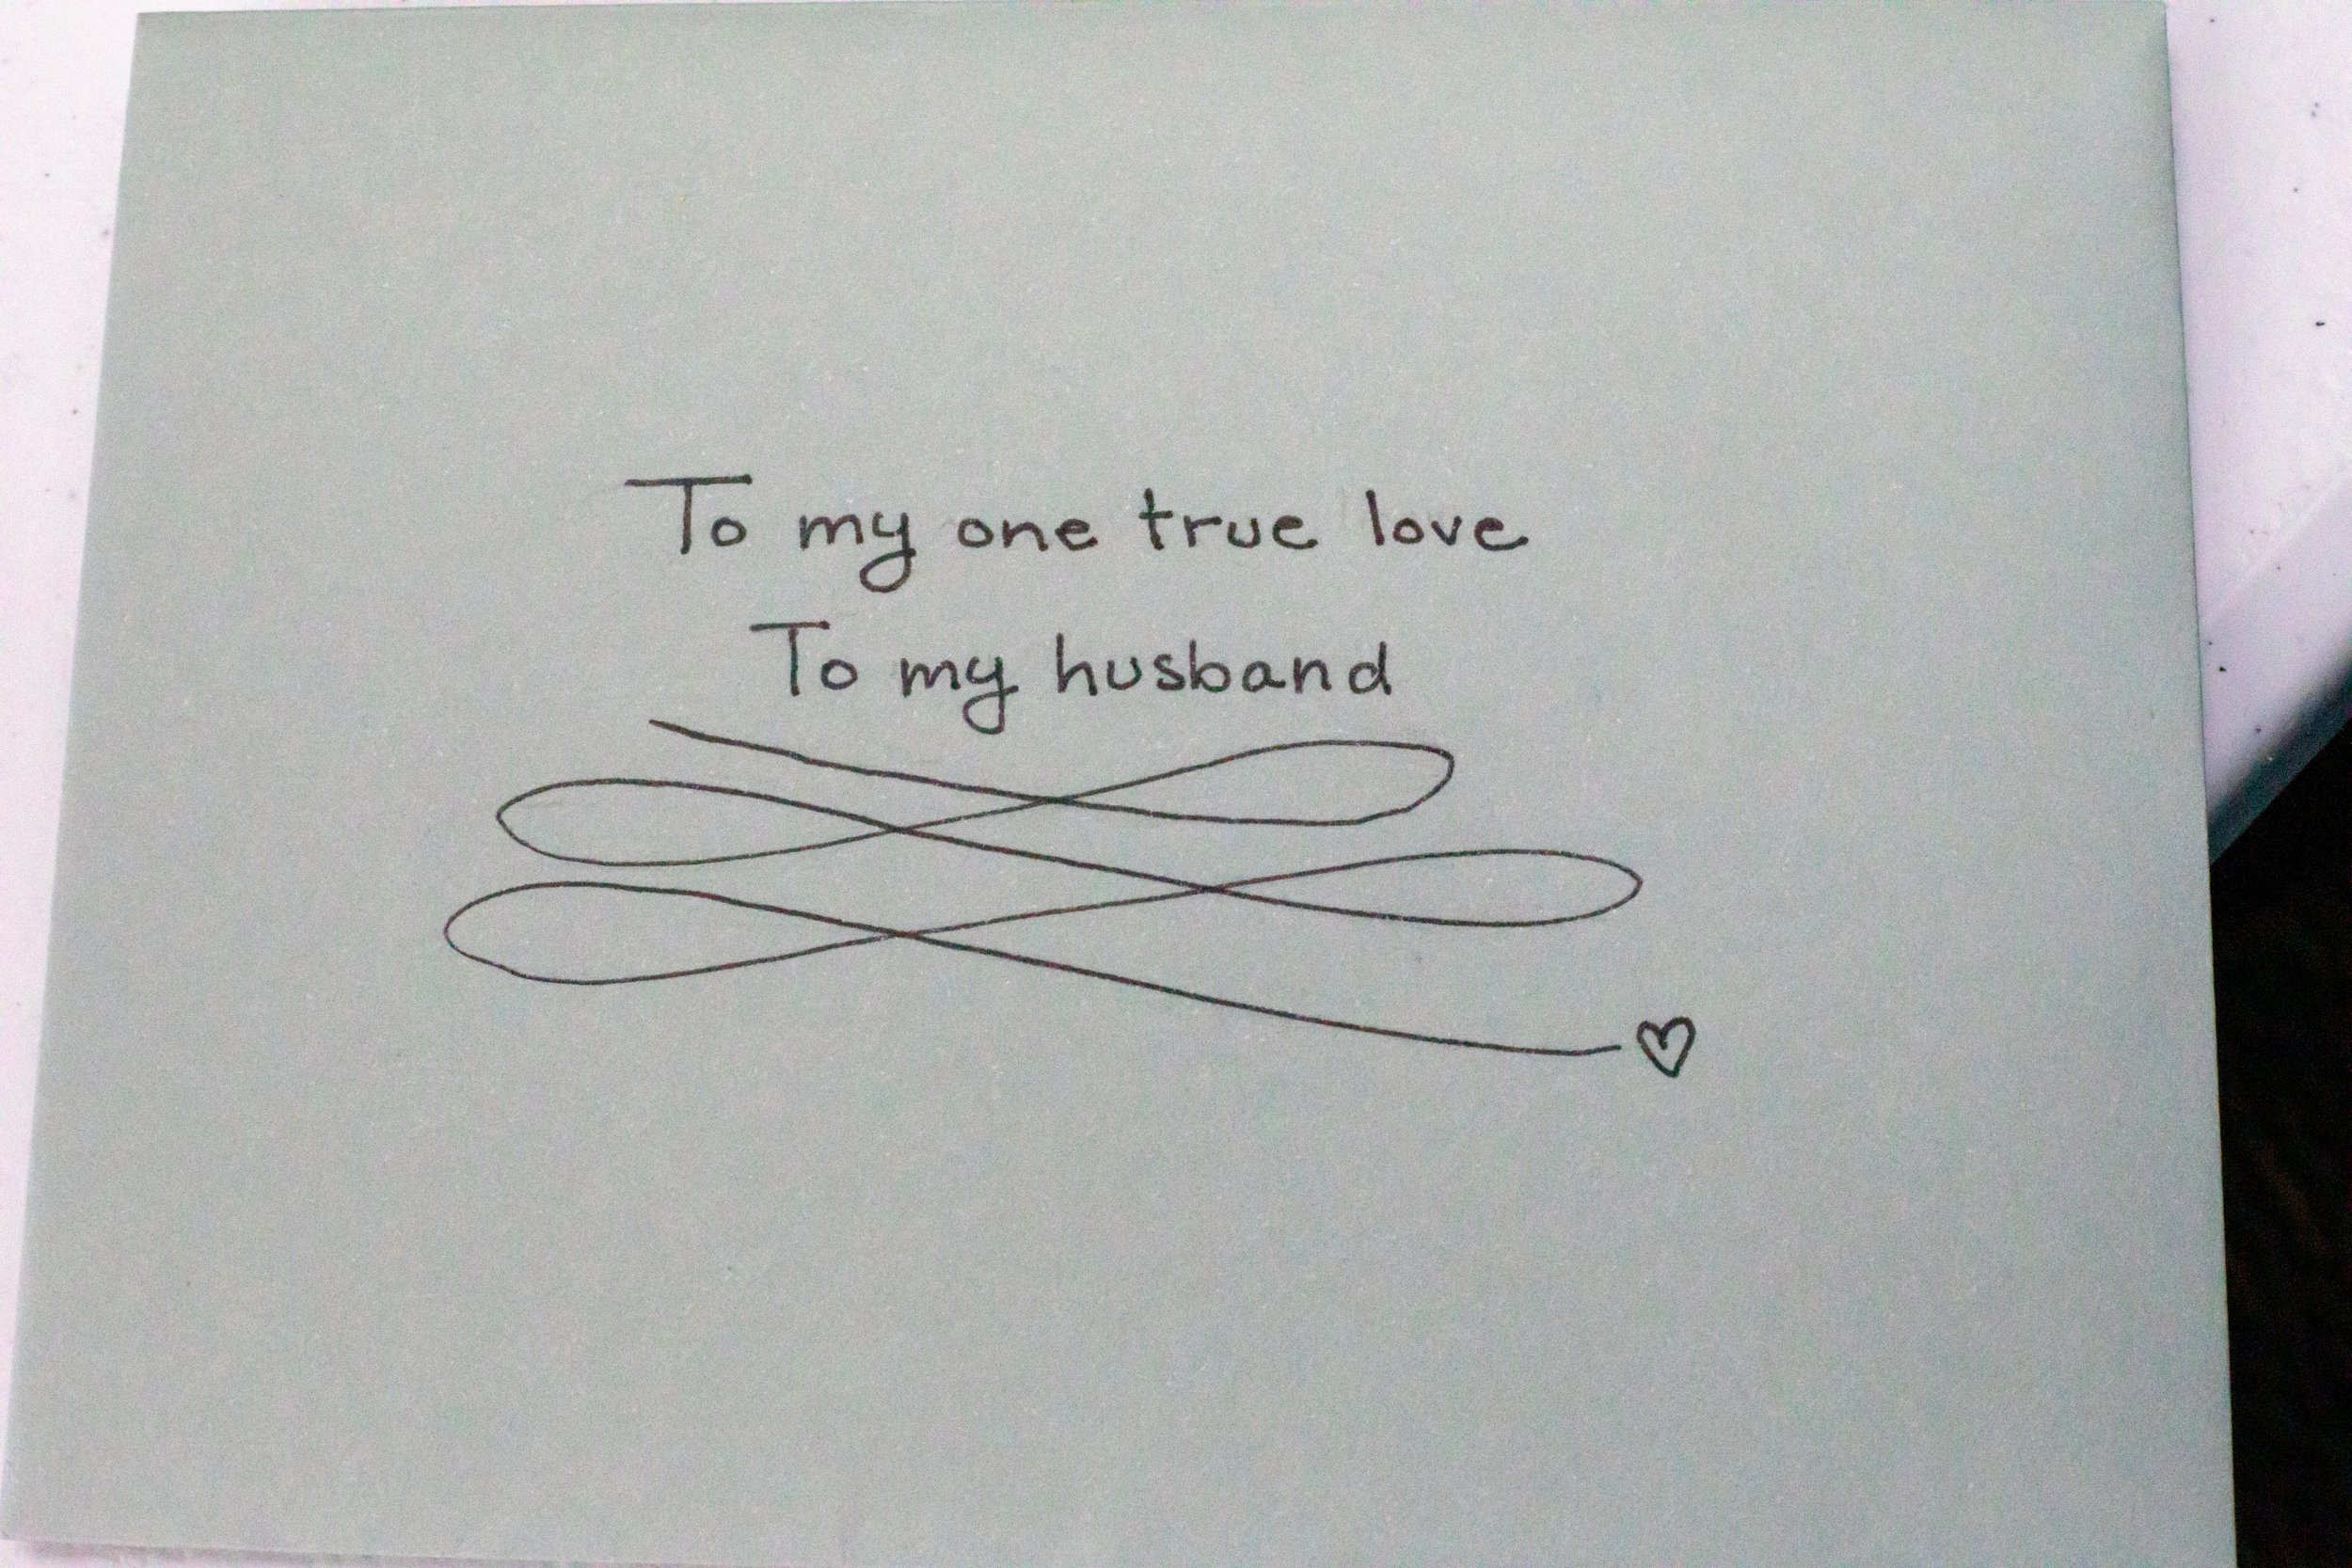 To my one true love
To my husband